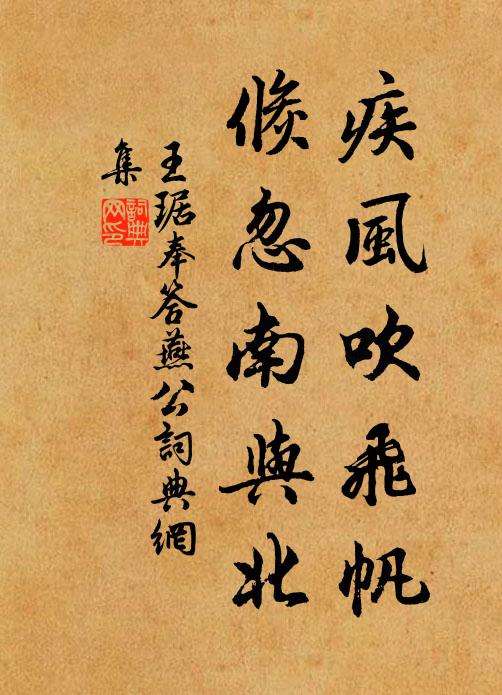 疾風吹飛帆
倏忽南與北
王琚奉答燕公詞典網
集
詞典
网印